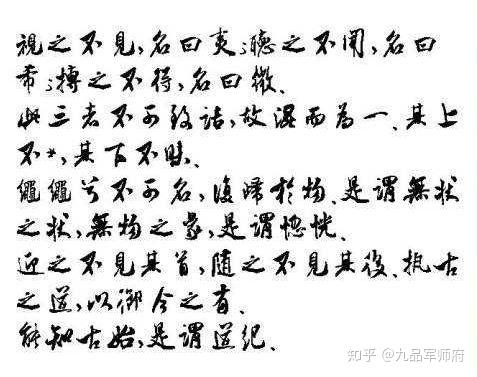 視之不見,名曰夷;聴之不聞,名曰
希;搏之不得,名曰微、
此三者不可致詰,故混而為一、其上
不*,其下不昧、
繩繩兮不可名,復歸於物、是謂無状
之状,無物之象,是謂惚恍、
迎之不見其首,隨之不見其後、执古
之道,以御今之有、
能知古始,是謂道纪、
知乎 @九品军师府